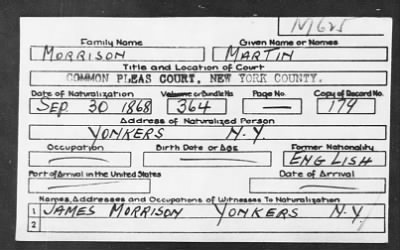 M625
Family Name Given Name or Names
MORRISON MARTIN
Title and Location of Court
COMMON PLEAS COURT, NEW YORK COUNTY.
Date of Naturalization Volume or Bundle No. Page No. Copy of Record No.
SEP 30 1868 364 — 179
Address of Naturalized Person
YONKERS N.Y.
Occupation Birth Date or Age Former Nationality
ENGLISH
Port of Arrival in the United States Date of Arrival
Names, Addresses and Occupations of Witnesses To Naturalization
1 JAMES MORRISON YONKERS N.Y.
2